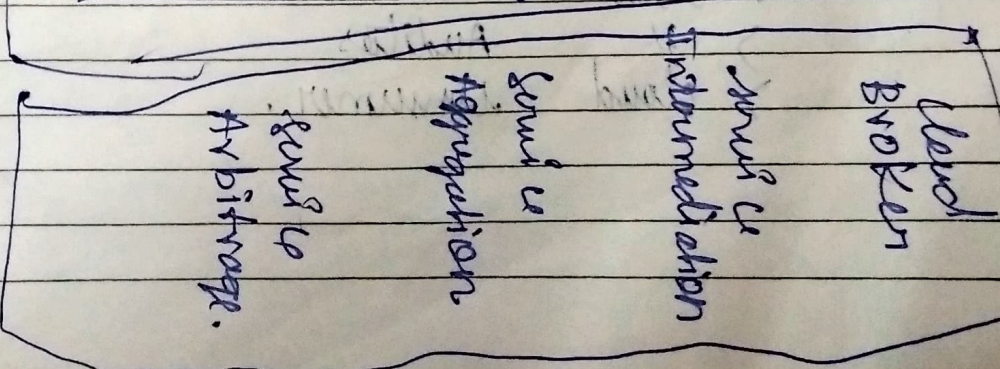 Cloud
Broker
Service
Intermediation
Service
Aggregation
Service
Arbitrage.